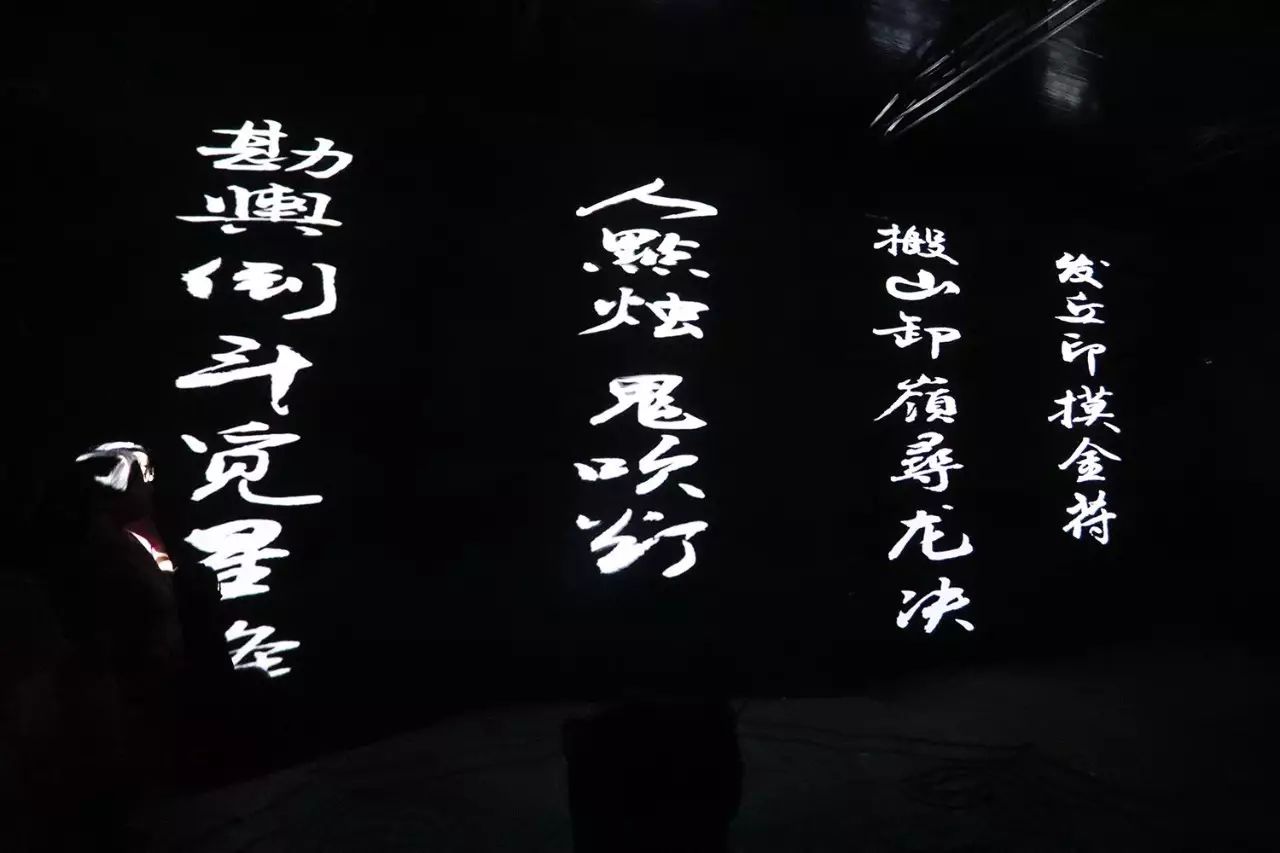 发丘印摸金符
搬山卸嶺尋龙决
人點烛 鬼吹灯
勘輿倒斗觅星